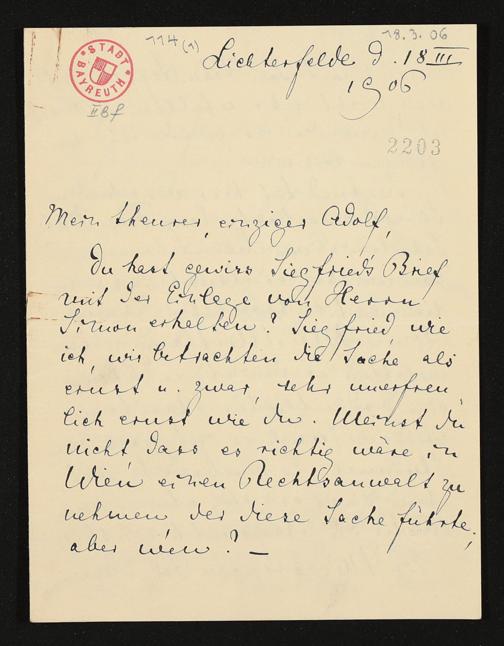 114 (1)
18.3.06
STADT BAYREUTH
II B f
Lichterfelde d. 18 III
1906
2203
Mein theurer, einziger Adolf,
Du hast gewiss Siegfried's Brief
mit der Einlage von Herrn
Simon erhalten? Siegfried, wie
ich, wir betrachten die Sache als
ernst u. zwar, sehr unerfreu
lich ernst wie du. Meinst du
nicht dass es richtig wäre in
Wien einen Rechtsanwalt zu
nehmen der diese Sache führte;
aber wen? —